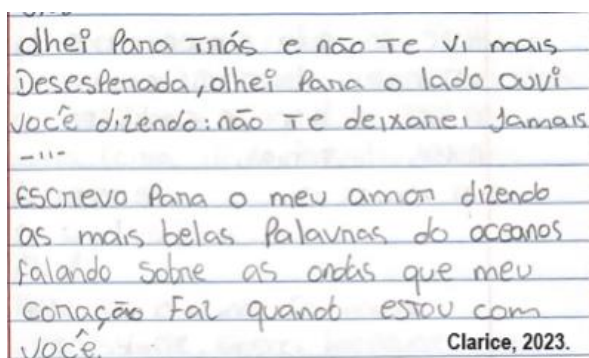 olhei Para Trás e não Te vi mais
Desesperada, olhei Para o lado ouvi
você dizendo: não Te deixarei Jamais
-11-
Escrevo Para o meu amor dizendo
as mais belas Palavras do oceanos
falando sobre as ondas que meu
coração Faz quando estou com
você.
Clarice, 2023.